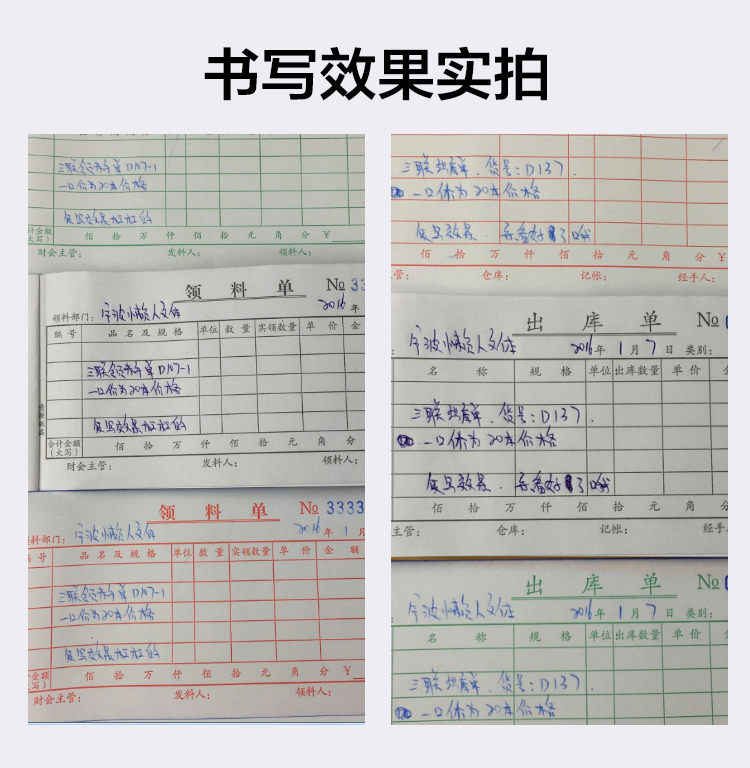 书写效果实拍
三联领料单 D107-1
一口价为20本价格
复写效果杠杠的
合计金额(大写) 佰 拾 万 仟 佰 拾 元 角 分 ¥
财会主管: 发料人: 领料人:
领 料 单 № 33
领料部门: 宁波懒人文体 2016 年
编 号 品 名 及 规 格 单位 数 量 实领数量 单 价 金
三联领料单 D107-1
一口价为20本价格
复写效果杠杠的
合计金额(大写) 佰 拾 万 仟 佰 拾 元 角 分
财会主管: 发料人: 领料人:
领 料 单 № 3333
料部门: 宁波懒人文体 2016 年 1 月
号 品 名 及 规 格 单位 数 量 实领数量 单 价 金 额
三联领料单 D107-1
一口价为20本价格
复写效果杠杠的
金额 写) 佰 拾 万 仟 佰 拾 元 角 分 ¥
财会主管: 发料人: 领料人:
三联出库单. 货号: D137.
一口价为20本价格
复写效果. 亲看好了哦
佰 拾 万 仟 佰 拾 元 角 分 ¥
管: 仓库: 记帐: 经手人:
出 库 单 №
宁波懒人文体 2016年 1 月 7 日 类别:
名 称 规 格 单位 出库数量 单 价
三联出库单. 货号: D137.
一口价为20本价格
复写效果. 亲看好了哦
佰 拾 万 仟 佰 拾 元 角 分
主管: 仓库: 记帐: 经手
出 库 单 №
宁波懒人文体 2016年 1 月 7 日 类别:
名 称 规 格 单位 出库数量 单 价
三联出库单. 货号: D137.
一口价为20本价格